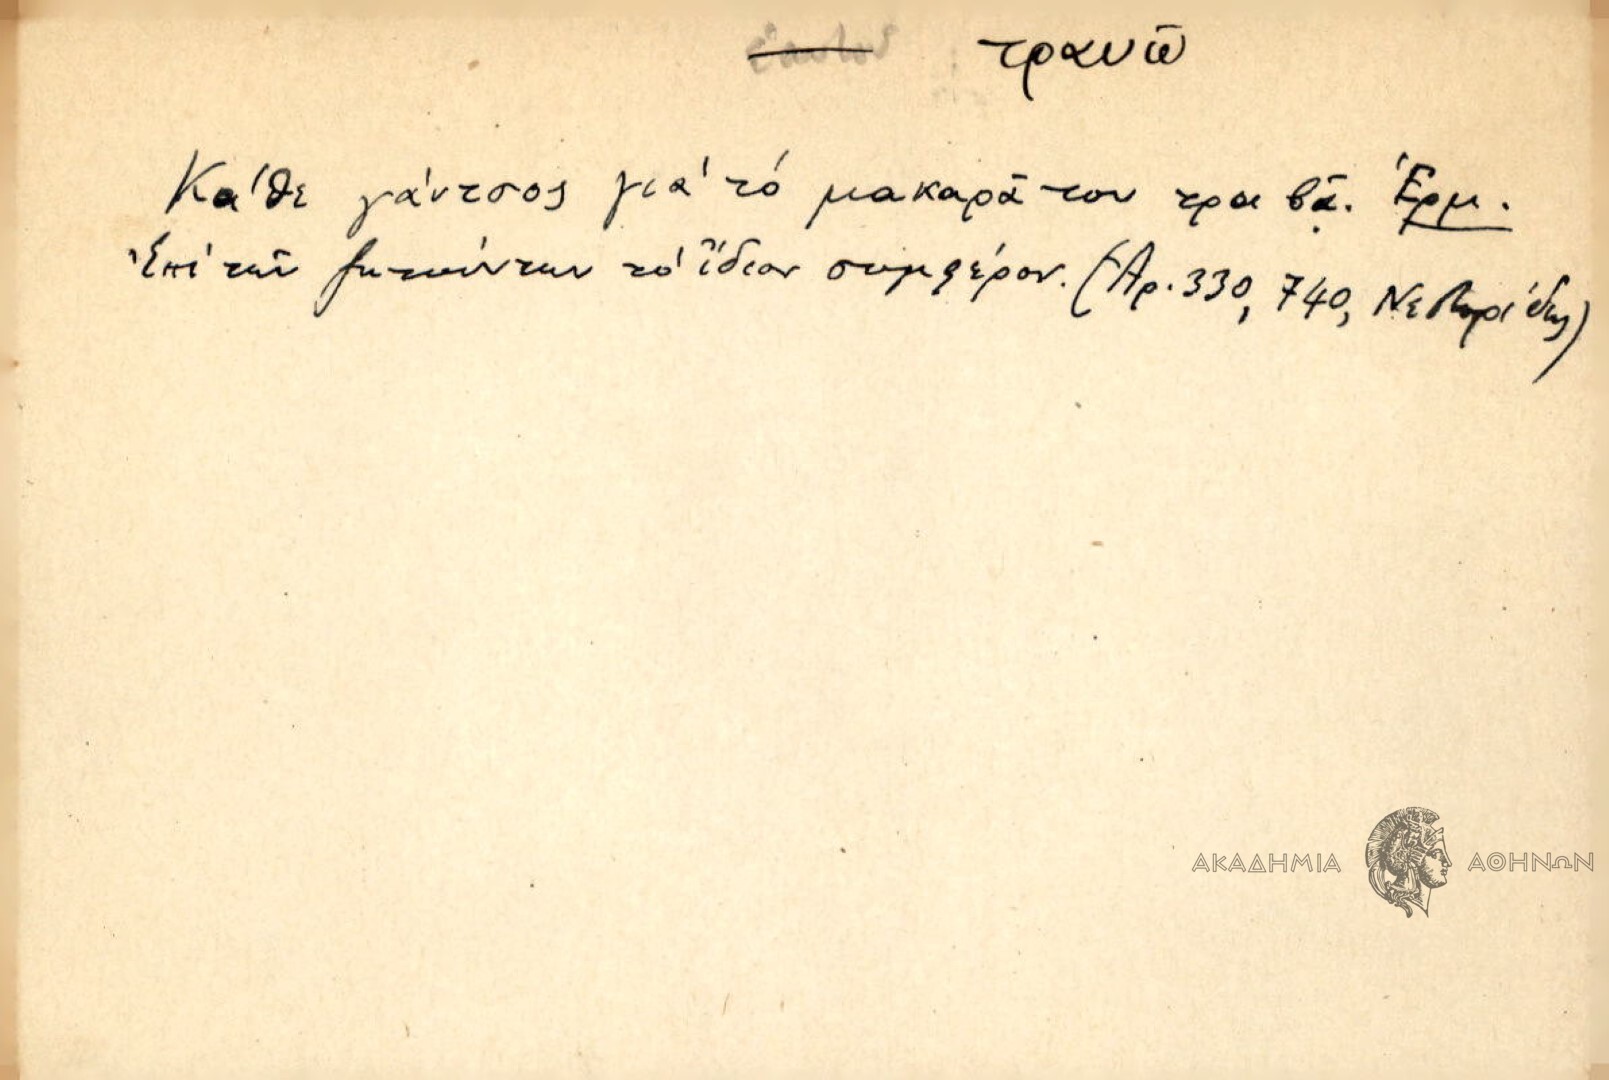 τρανῶ
Κάθε γάντσος γιά τό μακαρᾶ του τραβᾶ. Ἑρμ.
Ἐπί τῶν ζητούντων τό ἴδιον συμφέρον. (Ἀρ. 330, 740, Νεστορίδης)
ΑΚΑΔΗΜΙΑ ΑΘΗΝΩΝ